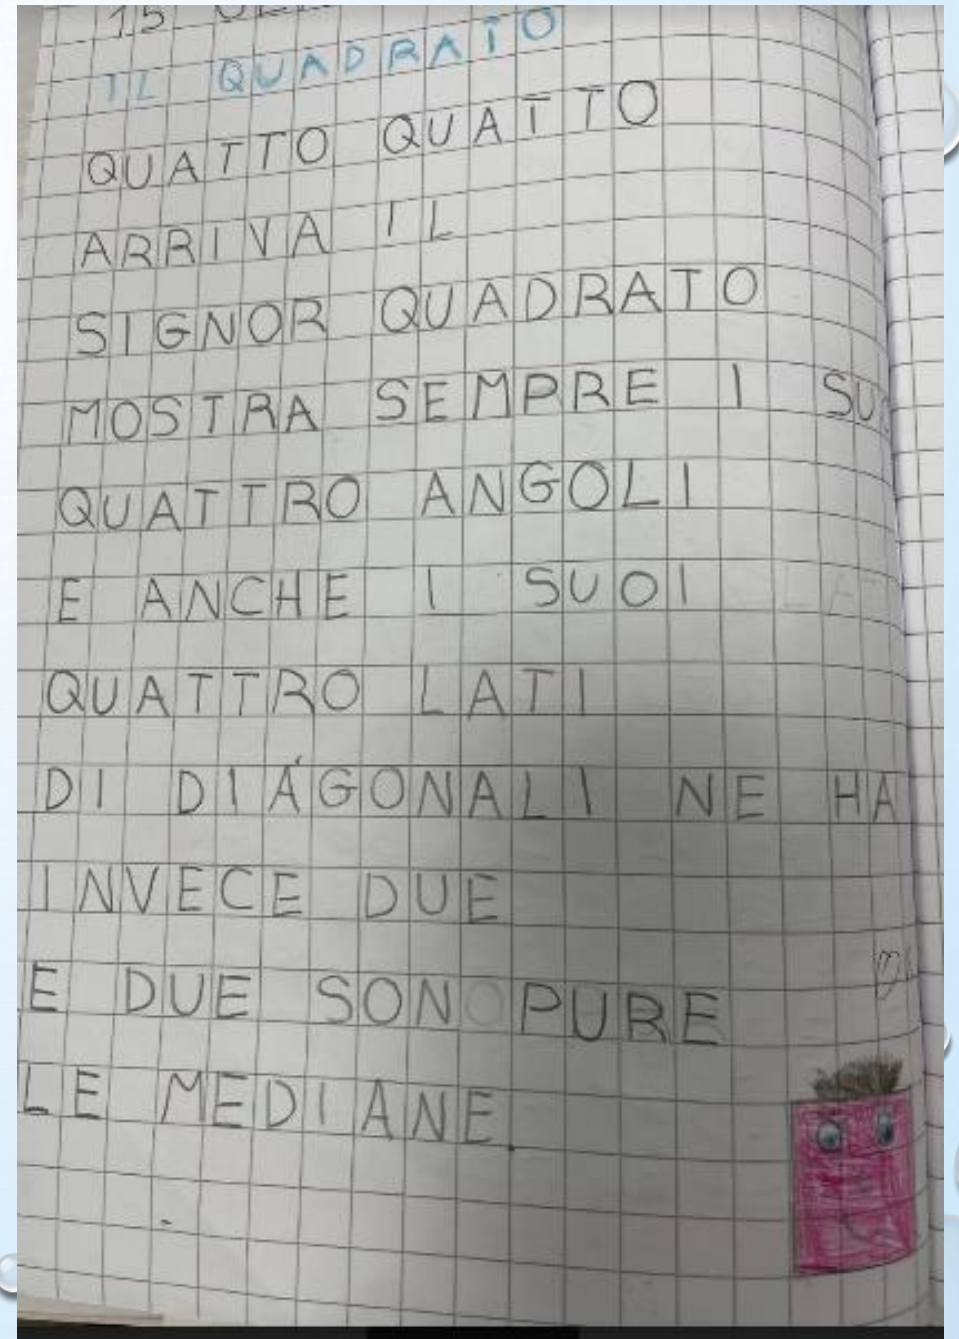 15
IL QUADRATO
QUATTO QUATTO
ARRIVA IL
SIGNOR QUADRATO
MOSTRA SEMPRE I
QUATTRO ANGOLI
E ANCHE I SUOI
QUATTRO LATI
DI DIÁGONALI NE HA
INVECE DUE
E DUE SON PURE
LE MEDIANE.